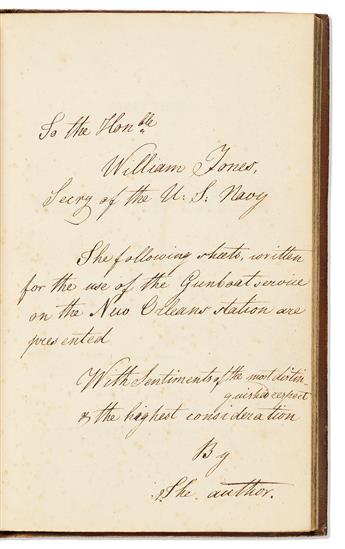 To the Honble
William Jones,
Secry of the U: S: Navy
The following sheets, written
for the use of the Gunboat service
on the New Orleans station are
presented
With Sentiments of the most distin-
guished respect
& the highest consideration
By
The author.